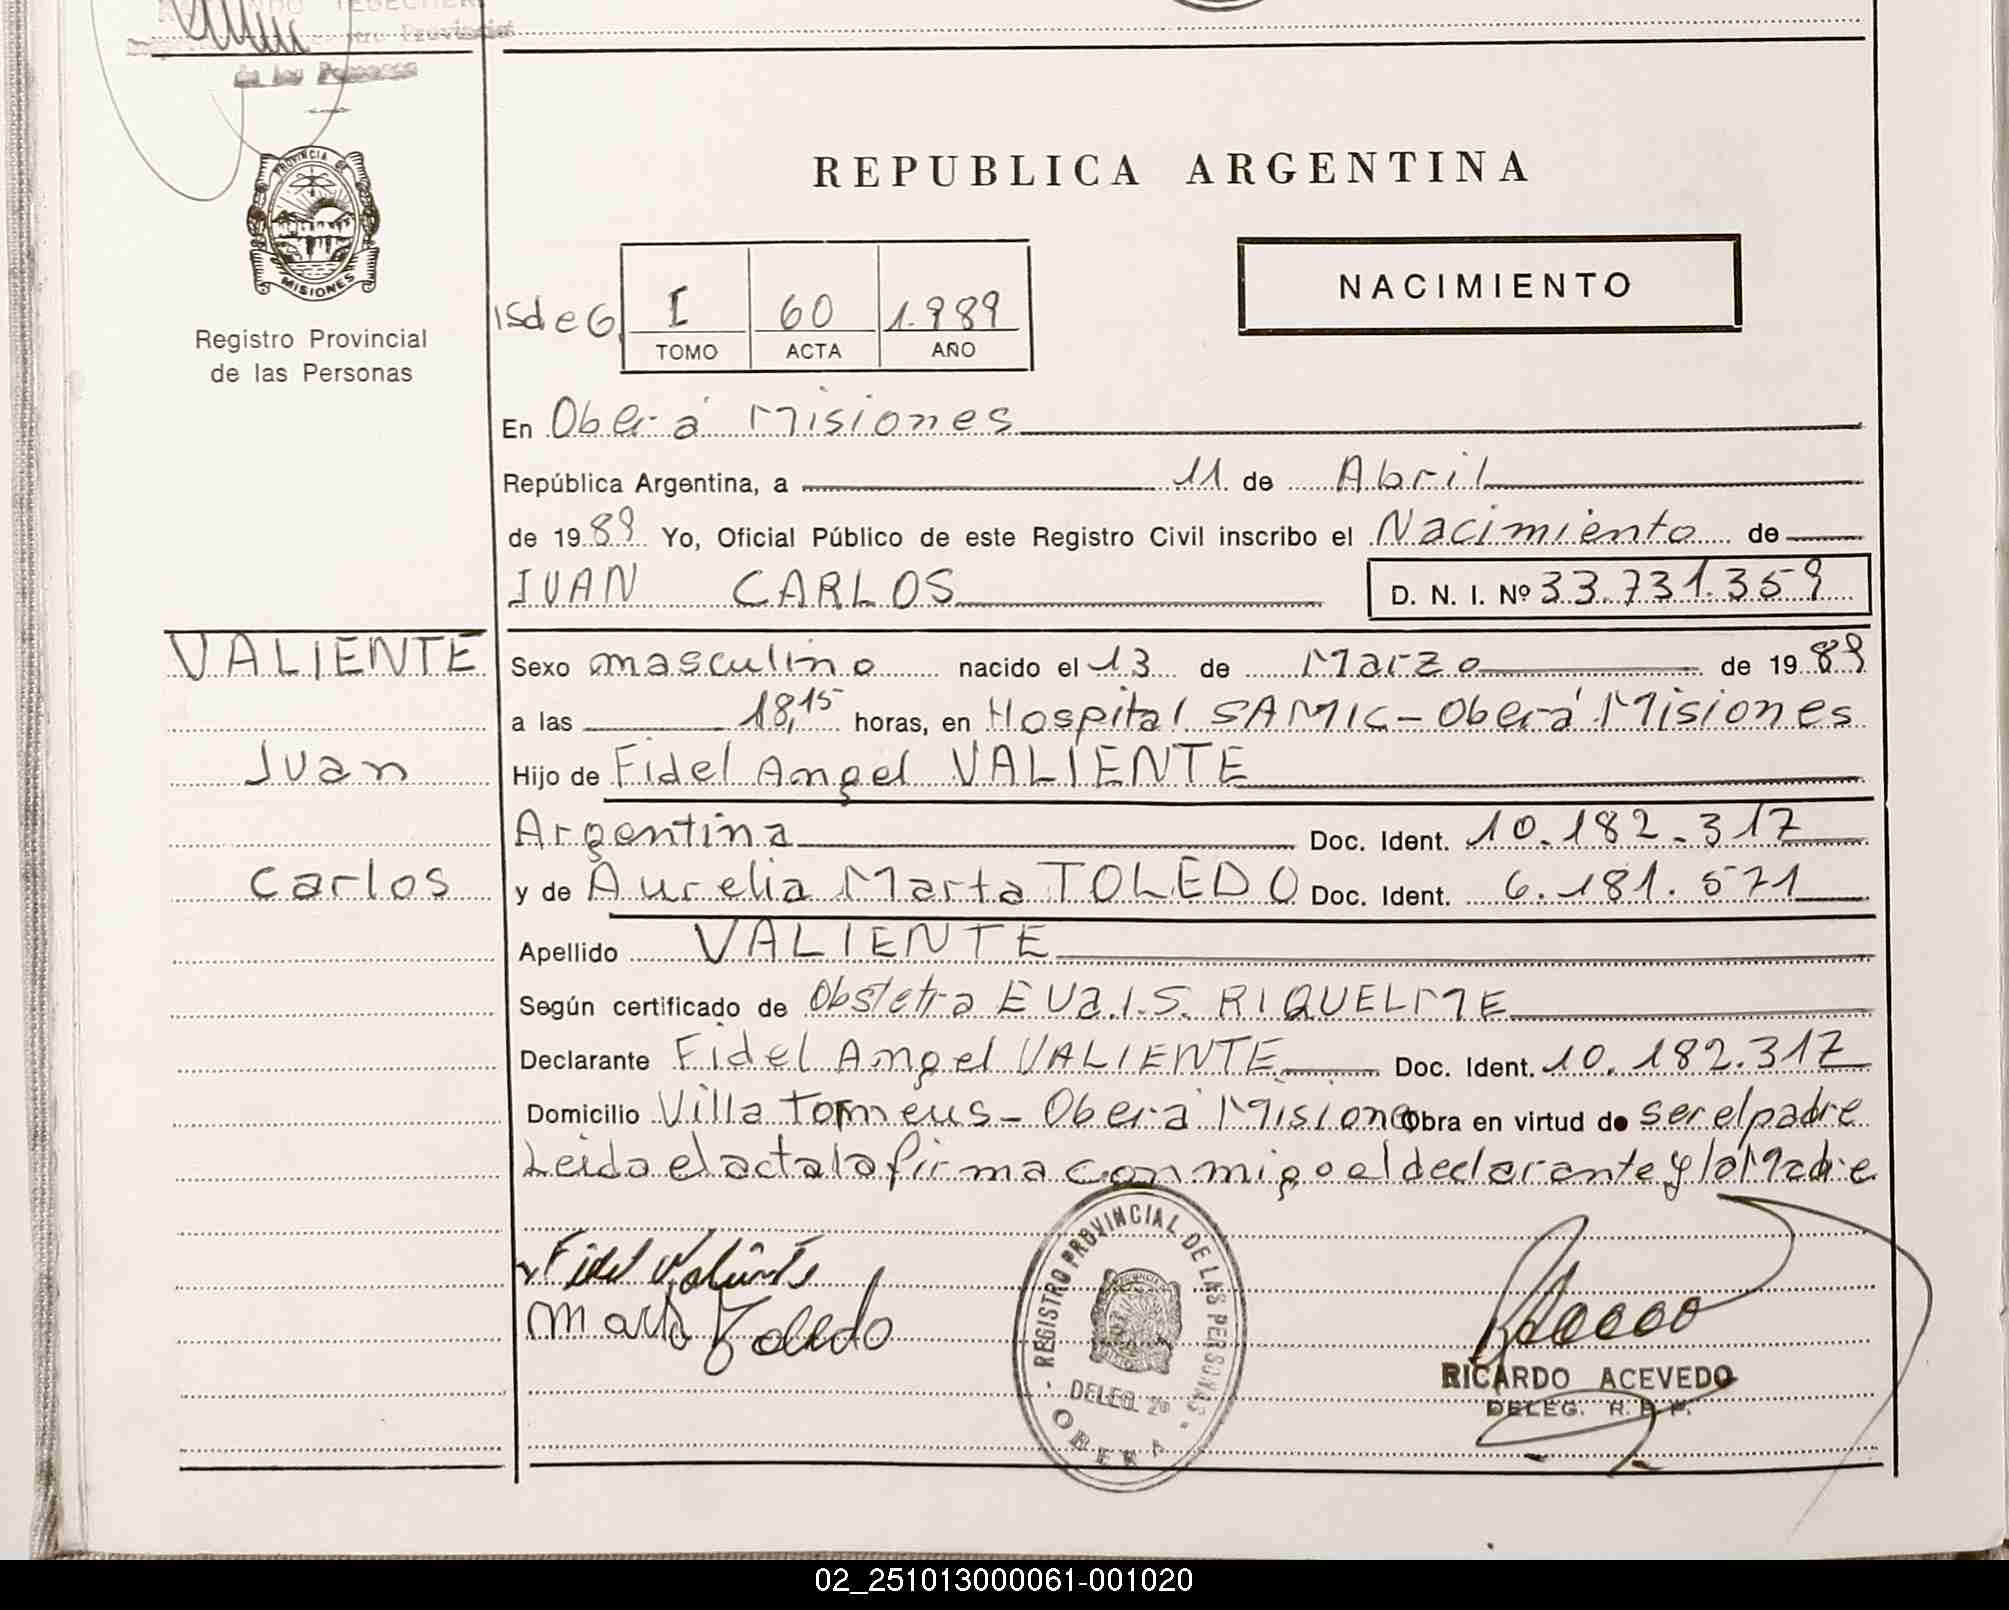 de las Personas
PROVINCIA DE
MISIONES
Registro Provincial
de las Personas
REPUBLICA ARGENTINA
NACIMIENTO
ISdeG. I 60 1.989
TOMO ACTA AÑO
En Oberá Misiones
República Argentina, a 11 de Abril
de 1989 Yo, Oficial Público de este Registro Civil inscribo el Nacimiento de
JUAN CARLOS D. N. I. Nº 33.731.359
VALIENTE
Juan
Carlos
Sexo masculino nacido el 13 de Marzo de 1989
a las 18,15 horas, en Hospital SAMIC - Oberá Misiones
Hijo de Fidel Angel VALIENTE
Argentina Doc. Ident. 10.182.317
y de Aurelia Marta TOLEDO Doc. Ident. 6.181.571
Apellido VALIENTE
Según certificado de Obstetra EVa.I.S. RIQUELME
Declarante Fidel Angel VALIENTE Doc. Ident. 10.182.317
Domicilio Villa Torneus - Oberá Misiones Obra en virtud de ser el padre
Leida el acta la firma conmigo el declarante y la Madre
Fidel Valiente
Marta Toledo
REGISTRO PROVINCIAL DE LAS PERSONAS
DELEG. 26
OBERA
RICARDO ACEVEDO
DELEG. R. P. P.
02_251013000061-001020